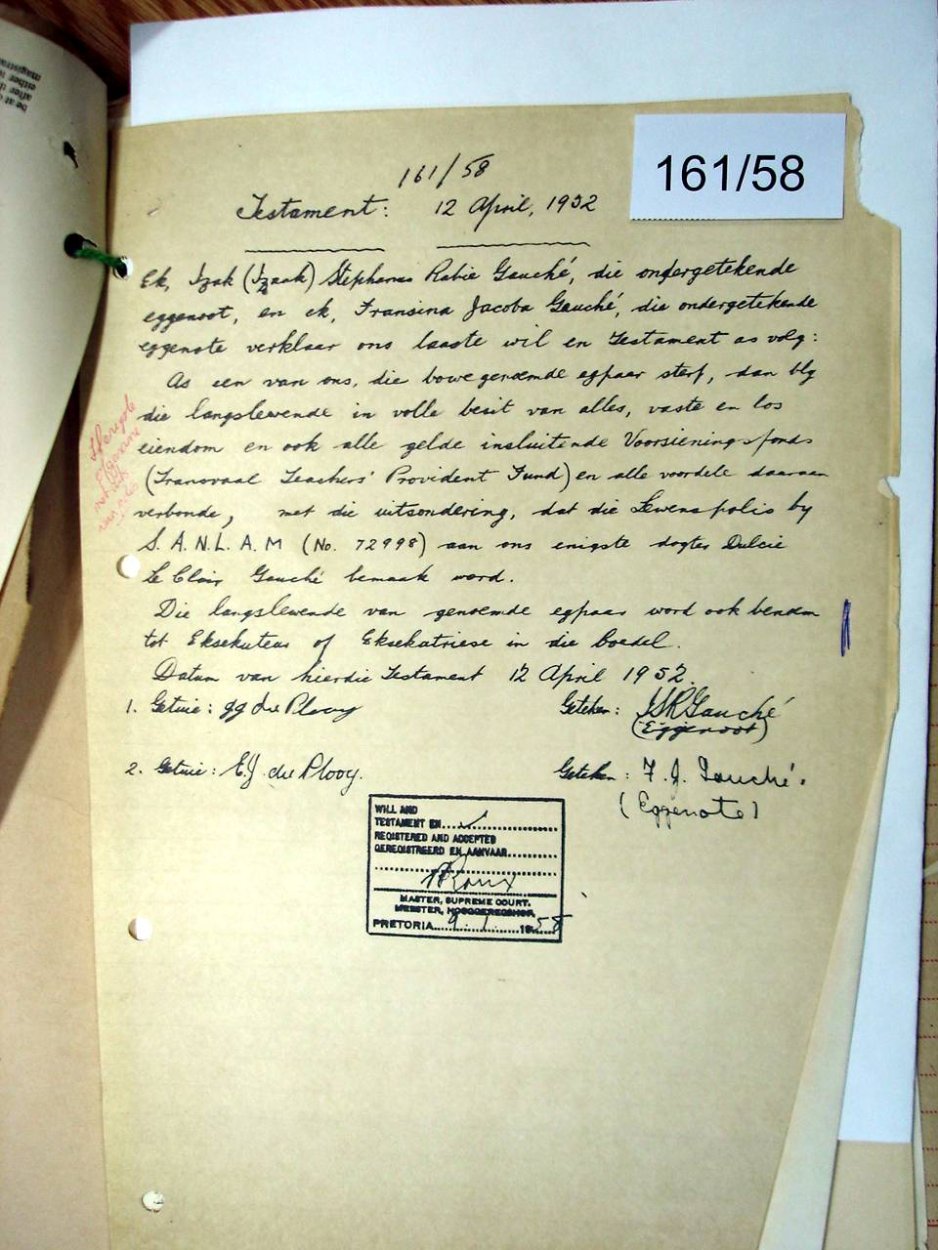 161/58
161/58
Testament: 12 April, 1952
Ek, Izak (Izaak) Stephanus Rabie Gauché, die ondergetekende
eggenoot, en ek, Fransina Jacoba Gauché, die ondergetekende
eggenote verklaar ons laaste wil en Testament as volg:
As een van ons, die bowegenoemde egpaar sterf, dan bly
die langslewende in volle besit van alles, vaste en los
eiendom en ook alle gelde insluitende Voorsieningsfonds
(Transvaal Teachers' Provident Fund) en alle voordele daaraan
verbonde, met die uitsondering, dat die Lewenspolis by
S.A.N.L.A.M (No. 72998) aan ons enigste dogter Dulcie
le Clair Gauché bemaak word.
Die langslewende van genoemde egpaar word ook benoem
tot Eksekuteur of Eksekutriese in die boedel.
Datum van hierdie Testament 12 April 1952.
1. Getuie: gg du Plooy Geteken: ISRGauché
(Eggenoot)
2. Getuie: E.J. du Plooy. Geteken: F. J. Gauché.
(Eggenote)
WILL AND
TESTAMENT EN
REGISTERED AND ACCEPTED
GEREGISTREERD EN AANVAAR
MASTER, SUPREME COURT.
MEESTER, HOOGGEREGSHOF.
PRETORIA 9.1.1958